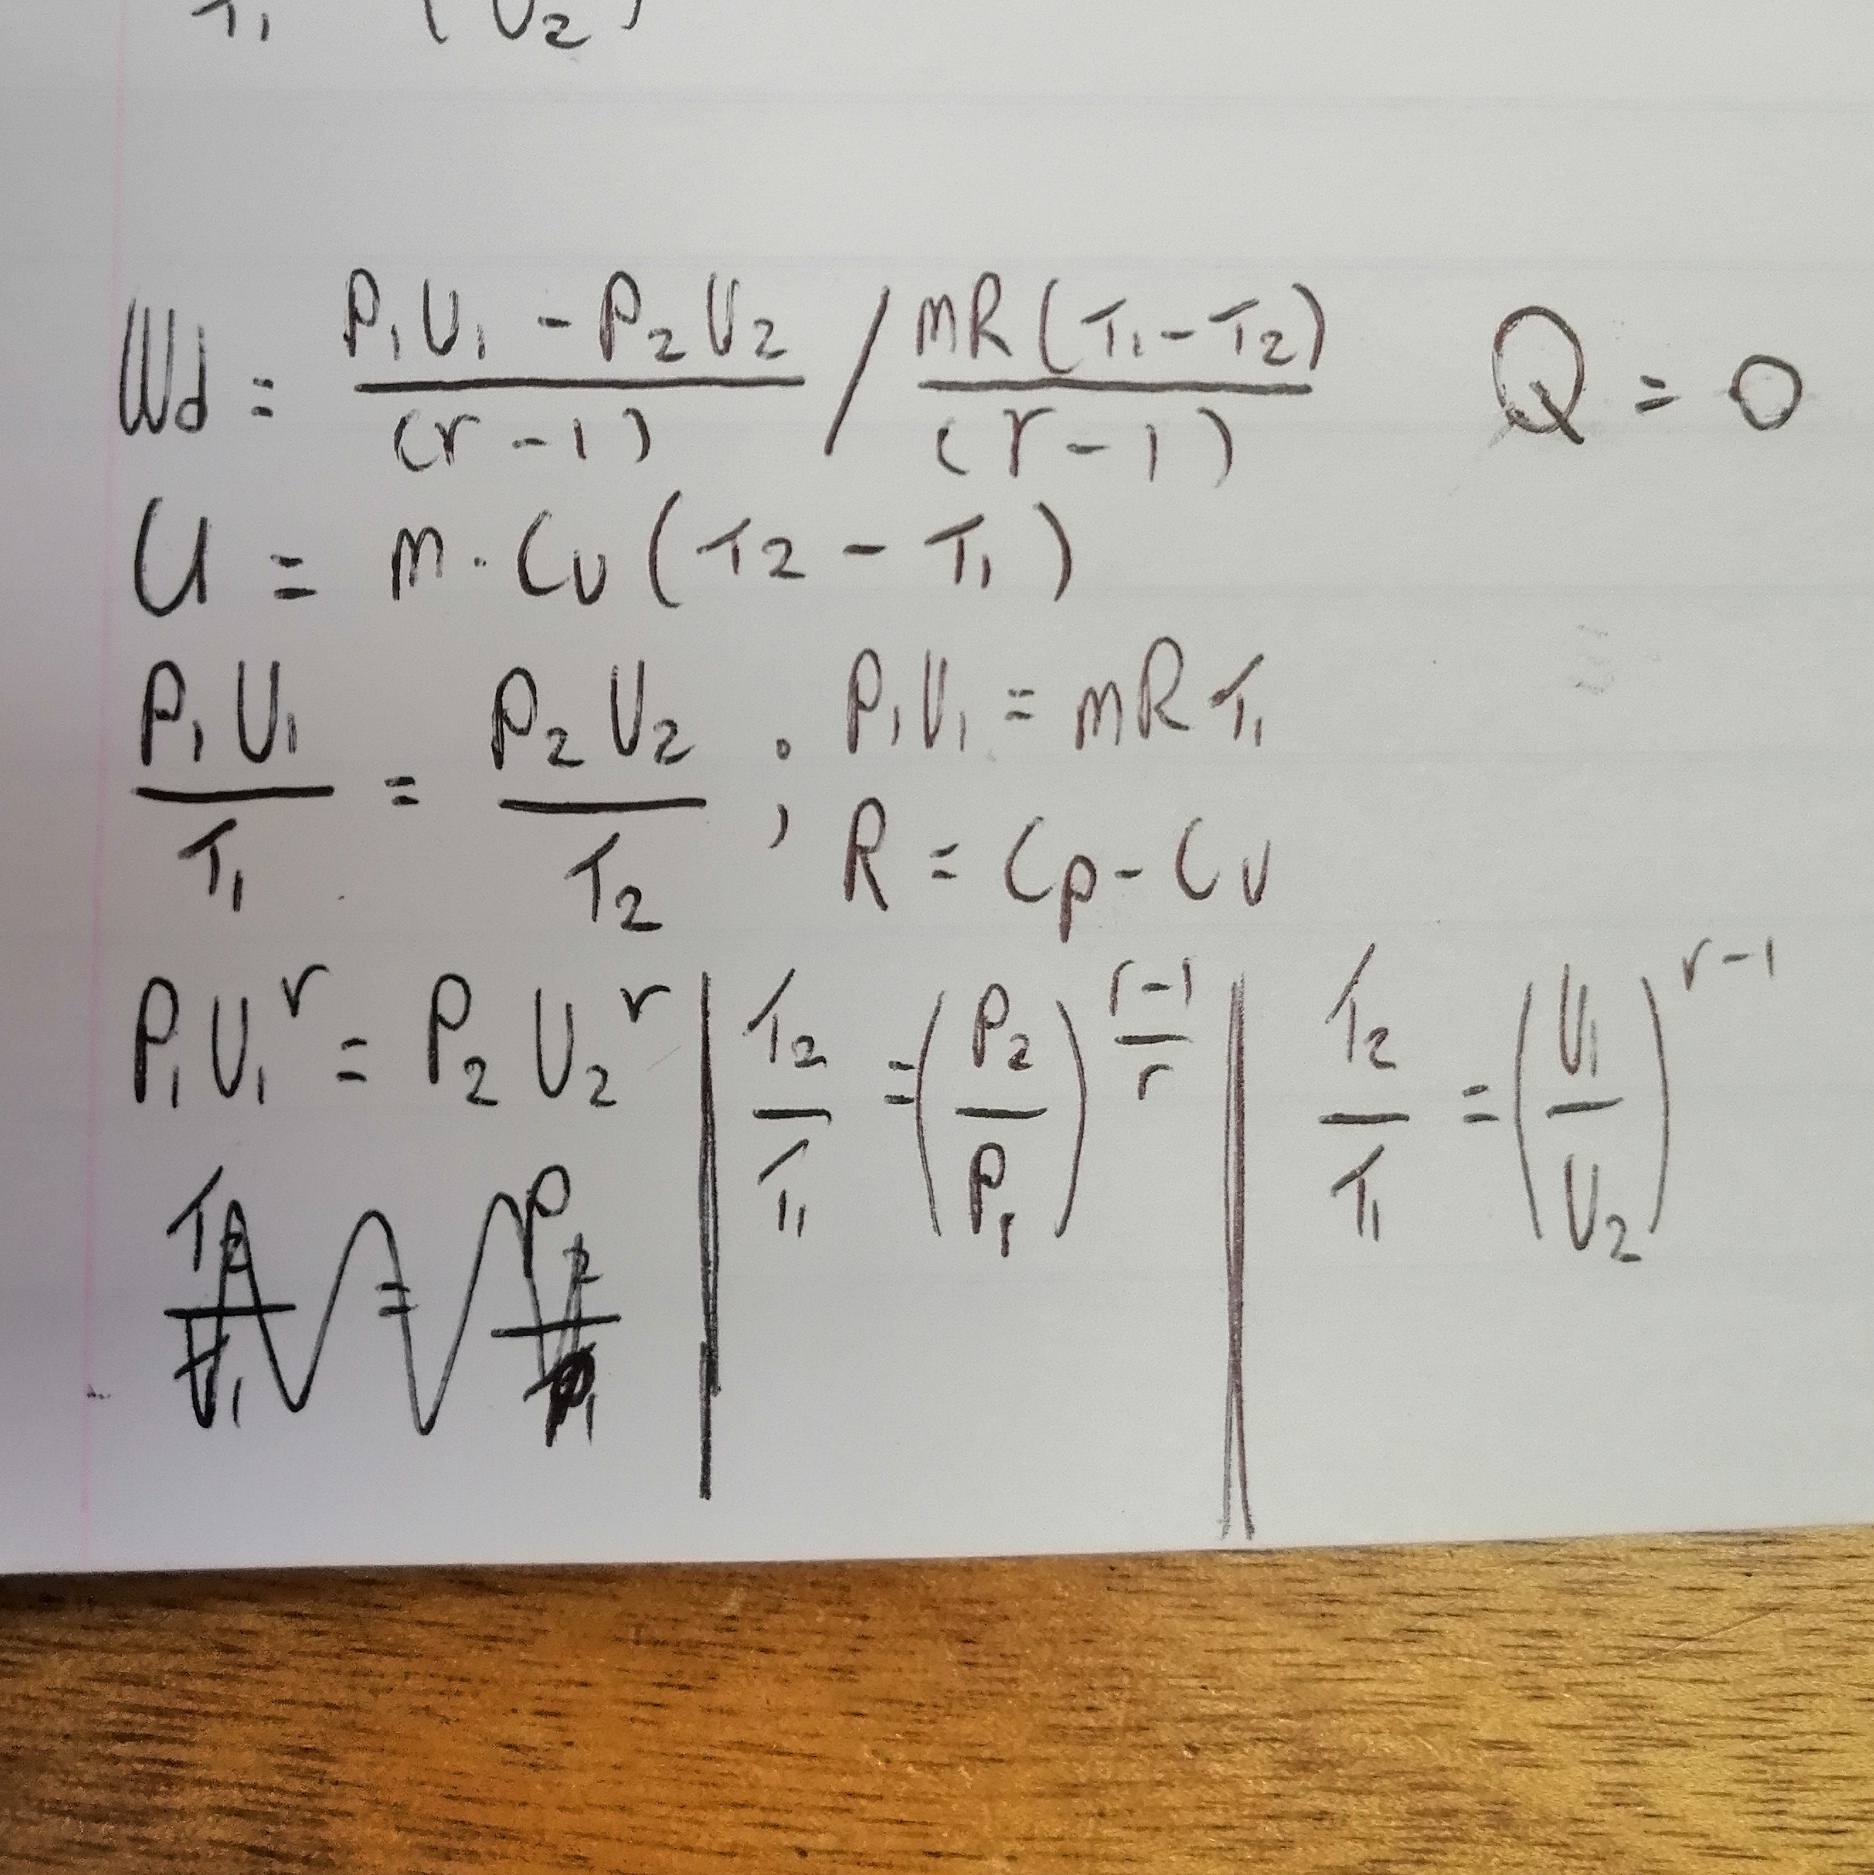 T₁ (V₂)
Wd = P₁V₁ - P₂V₂ / (r-1) / mR(T₁-T₂) / (r-1) Q = 0
U = m · Cv (T2 - T₁)
P₁V₁ / T₁ = P₂V₂ / T₂ ; P₁V₁ = mRT₁
R = Cp - Cv
P₁V₁^r = P₂V₂^r | T₂/T₁ = (P₂/P₁)^((r-1)/r) | T₂/T₁ = (V₁/V₂)^(r-1)